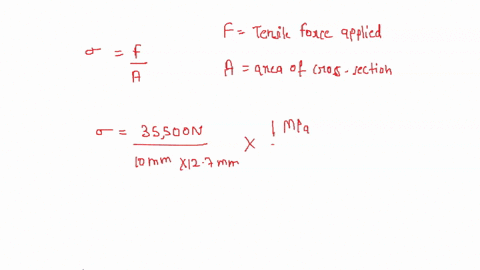 σ = f/A
F = Tensile force applied
A = area of cross-section
σ = 35,500N / 10mm x12.7mm × 1 MPa